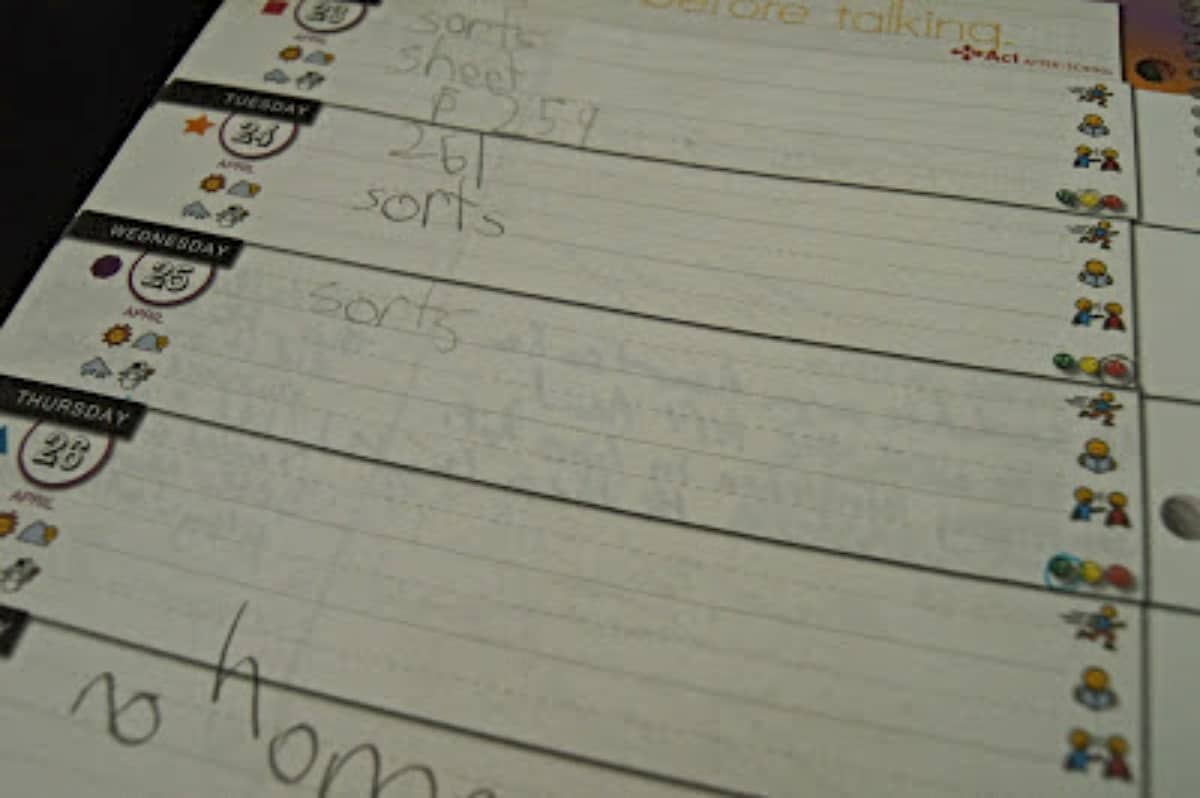 before talking.
Act AFTER-SCHOOL
23
sorts
APRIL
sheet
P 259
TUESDAY
24
261
APRIL
sorts
WEDNESDAY
25
sorts
APRIL
THURSDAY
26
APRIL
no hom